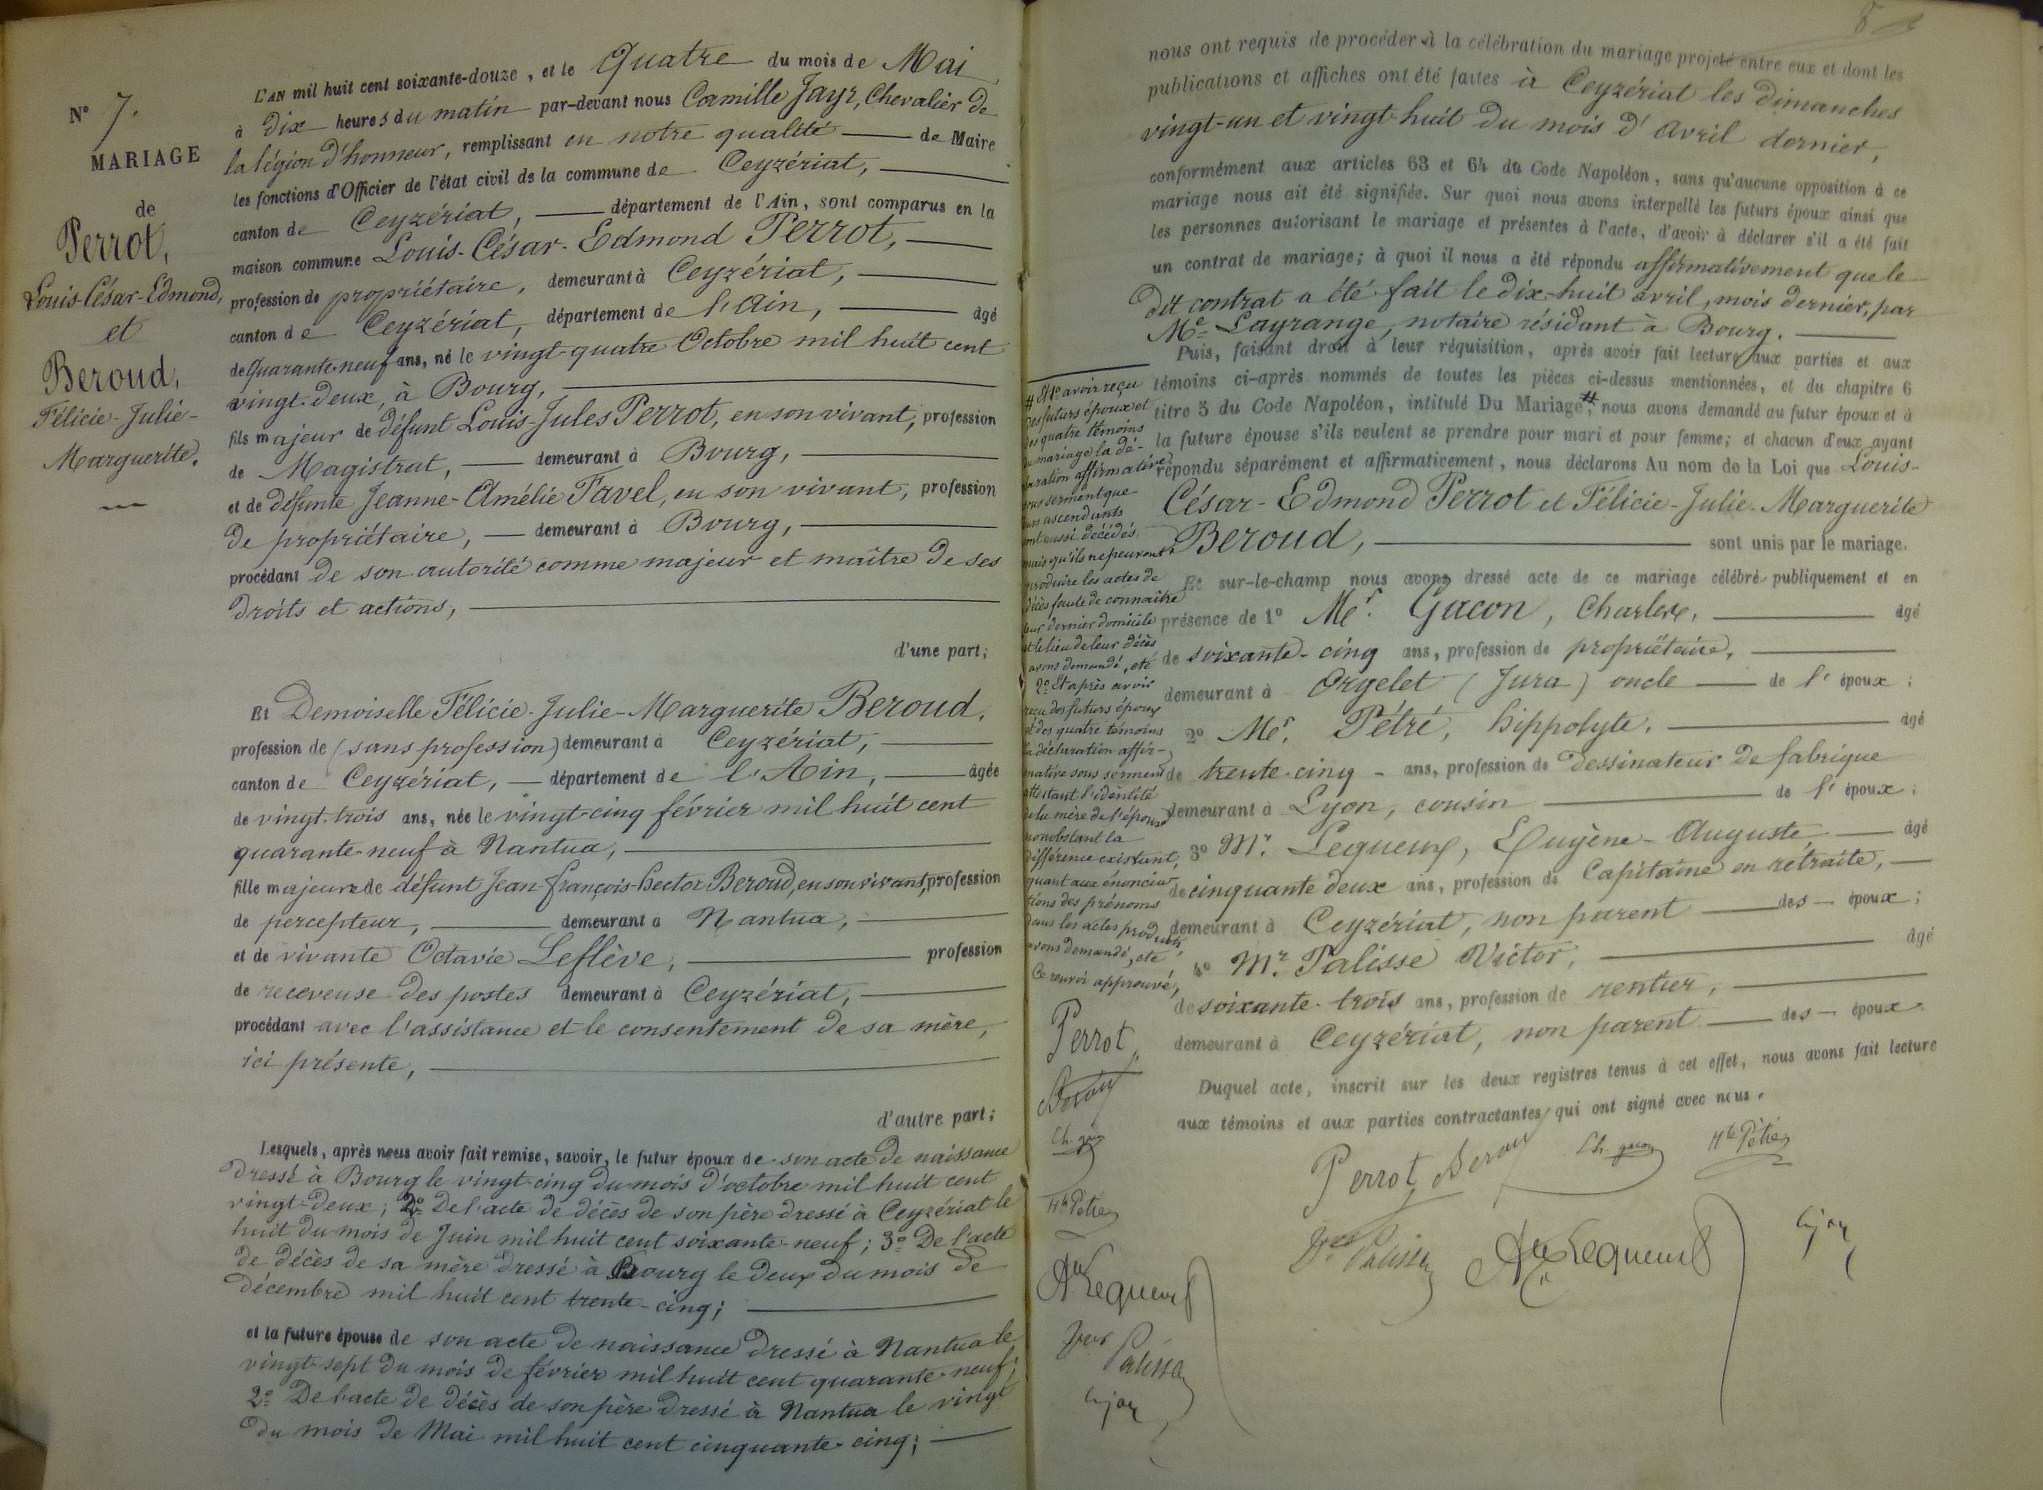 N° 7.
MARIAGE
de
Perrot,
Louis-César-Edmond,
et
Beroud,
Félicie-Julie-
Marguerite.
L'AN mil huit cent soixante-douze, et le Quatre du mois de Mai
à dix heures du matin par-devant nous Camille Jayr, Chevalier de
la légion d'honneur, remplissant en notre qualité de Maire
les fonctions d'Officier de l'état civil de la commune de Ceyzériat,
canton de Ceyzériat, département de l'Ain, sont comparus en la
maison commune Louis-César-Edmond Perrot,
profession de propriétaire, demeurant à Ceyzériat,
canton de Ceyzériat, département de l'Ain, âgé
de Quarante-neuf ans, né le vingt-quatre Octobre mil huit cent
vingt-deux, à Bourg,
fils majeur de défunt Louis-Jules Perrot, en son vivant, profession
de Magistrat, demeurant à Bourg,
et de défunte Jeanne-Amélie Favel, en son vivant, profession
de propriétaire, demeurant à Bourg,
procédant de son autorité comme majeur et maître de ses
droits et actions,
d'une part;
Et Demoiselle Félicie-Julie-Marguerite Beroud,
profession de (sans profession) demeurant à Ceyzériat,
canton de Ceyzériat, département de l'Ain, âgée
de vingt-trois ans, née le vingt-cinq février mil huit cent
quarante-neuf à Nantua,
fille majeure de défunt Jean-françois-hector Beroud, en son vivant, profession
de percepteur, demeurant à Nantua,
et de vivante Octavie Leflève, profession
de receveuse des postes demeurant à Ceyzériat,
procédant avec l'assistance et le consentement de sa mère,
ici présente,
d'autre part;
Lesquels, après nous avoir fait remise, savoir, le futur époux de son acte de naissance
dressé à Bourg le vingt-cinq du mois d'octobre mil huit cent
vingt-deux; 2° De l'acte de décès de son père dressé à Ceyzériat le
huit du mois de Juin mil huit cent soixante-neuf; 3° De l'acte
de décès de sa mère dressé à Bourg le deux du mois de
décembre mil huit cent trente-cinq;
et la future épouse de son acte de naissance dressé à Nantua le
vingt-sept du mois de février mil huit cent quarante-neuf;
2° De l'acte de décès de son père dressé à Nantua le vingt
du mois de Mai mil huit cent cinquante-cinq;
8
nous ont requis de procéder à la célébration du mariage projeté entre eux et dont les
publications et affiches ont été faites à Ceyzériat les dimanches
vingt-un et vingt-huit du mois d'avril dernier,
conformément aux articles 63 et 64 du Code Napoléon, sans qu'aucune opposition à ce
mariage nous ait été signifiée. Sur quoi nous avons interpellé les futurs époux ainsi que
les personnes autorisant le mariage et présentes à l'acte, d'avoir à déclarer s'il a été fait
un contrat de mariage; à quoi il nous a été répondu affirmativement que le
dit contrat a été fait le dix-huit avril, mois dernier, par
Me Lagrange, notaire résidant à Bourg.
Puis, faisant droit à leur réquisition, après avoir fait lecture aux parties et aux
témoins ci-après nommés de toutes les pièces ci-dessus mentionnées, et du chapitre 6
titre 5 du Code Napoléon, intitulé Du Mariage, # nous avons demandé au futur époux et à
la future épouse s'ils veulent se prendre pour mari et pour femme; et chacun d'eux ayant
répondu séparément et affirmativement, nous déclarons Au nom de la Loi que Louis-
César-Edmond Perrot et Félicie-Julie-Marguerite
Beroud, sont unis par le mariage.
Et sur-le-champ nous avons dressé acte de ce mariage célébré publiquement et en
présence de 1° Mr. Gacon, Charles, âgé
de soixante-cinq ans, profession de propriétaire,
demeurant à Orgelet (Jura) oncle de l'époux;
2° Mr. Pétré, hippolyte, âgé
de trente-cinq ans, profession de dessinateur de fabrique
demeurant à Lyon, cousin de l'époux;
3° Mr. Lequeux, Eugène-Auguste âgé
de cinquante deux ans, profession de Capitaine en retraite,
demeurant à Ceyzériat, non parent des époux;
4° Mr. Palisse Victor, âgé
de soixante-trois ans, profession de rentier,
demeurant à Ceyzériat, non parent des époux.
Duquel acte, inscrit sur les deux registres tenus à cet effet, nous avons fait lecture
aux témoins et aux parties contractantes qui ont signé avec nous.
Perrot Beroud Ch. gacon Hte Pétré
Vtor Palisse Ate Lequeux
# Et 1° avoir reçu
des futurs époux et
des quatre témoins
du mariage la dé-
claration affirmative
sous serment que
leurs ascendants
sont aussi décédés
mais qu'ils ne peuvent
produire les actes de
décès faute de connaître
leur dernier domicile
et le lieu de leur décès
avons demandé, etc
2° Et après avoir
reçu des futurs époux
et des quatre témoins
la déclaration affir-
mative sous serment
attestant l'identité
de la mère de l'épouse
nonobstant la
différence existant
quant aux énoncia-
tions des prénoms
dans les actes produits
avons demandé, etc
Ce renvoi approuvé,
Perrot
Beroud
Ch. gacon
Hte Pétré
Ate Lequeux
Vtor Palisse